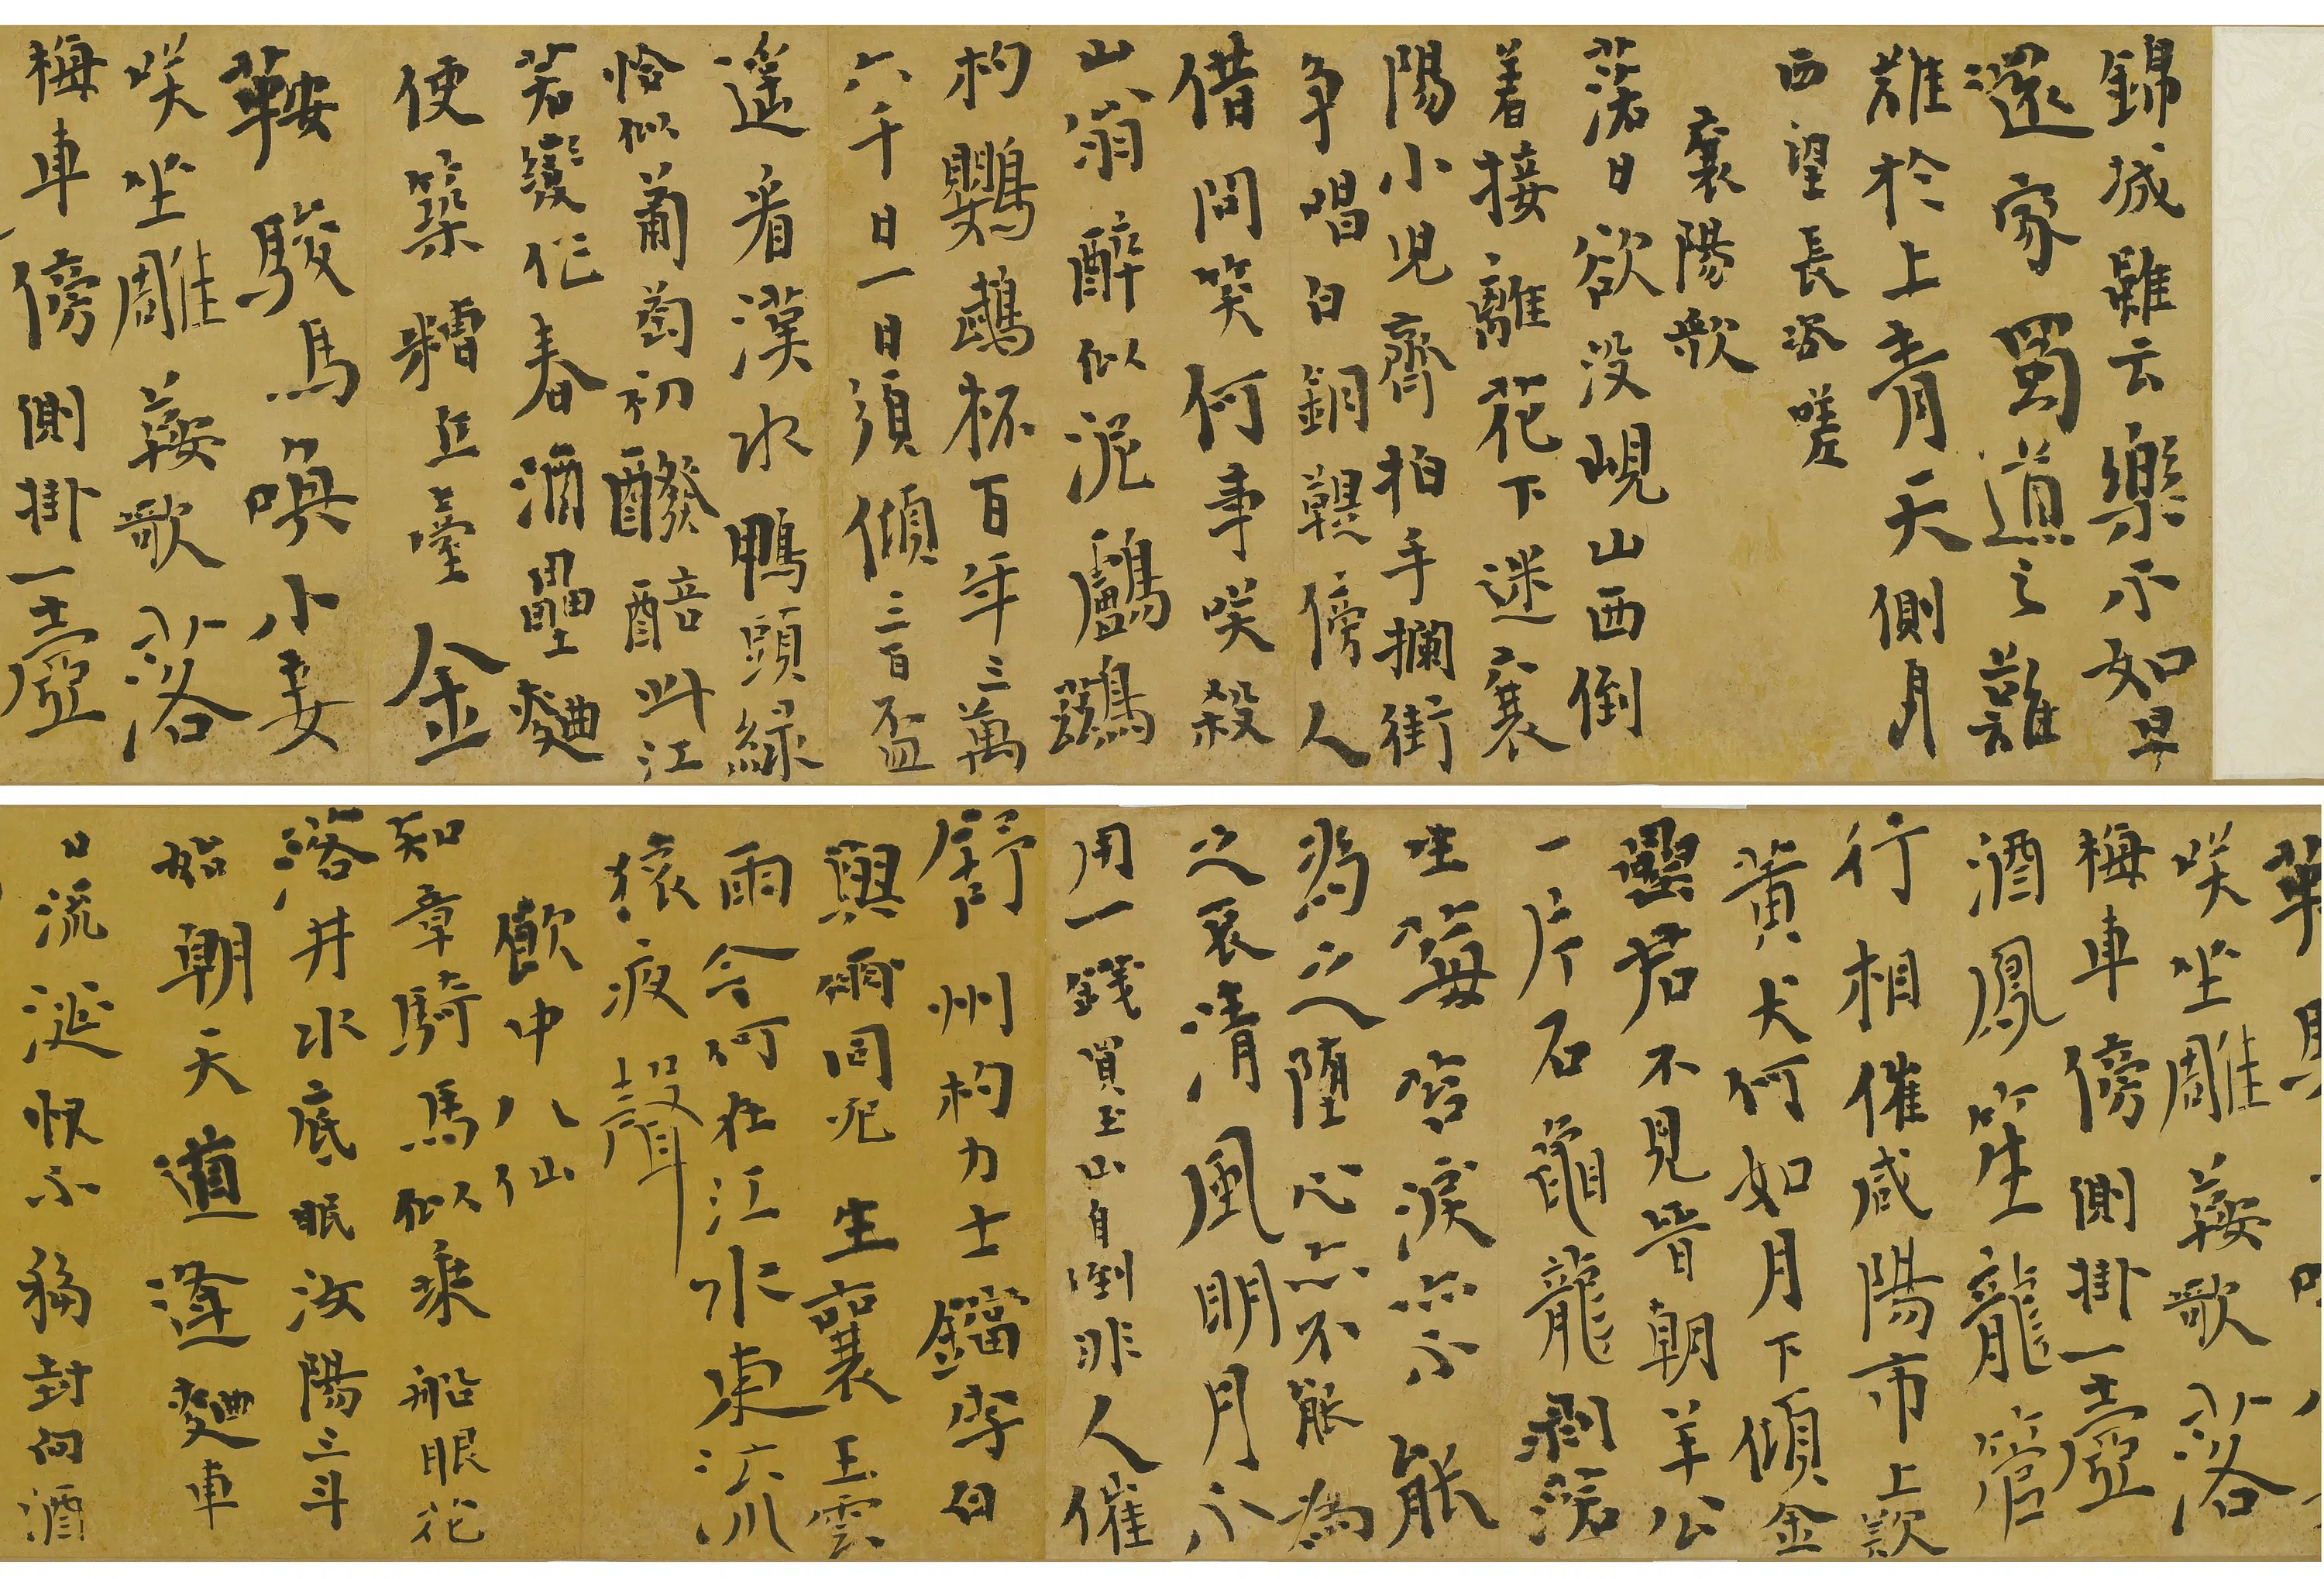 錦城雖云樂不如早
還家蜀道之難
難於上青天側身
西望長咨嗟
襄陽歌
落日欲没峴山西倒
着接離花下迷襄
陽小兒齊拍手攔街
争唱白銅鞮傍人
借問笑何事咲殺
山翁醉似泥鸕鷀
杓鸚鵡杯百年三萬
六千日一日須傾三百盃
遥看漢水鴨頭緑
恰似葡萄初醱醅此江
若變作春酒壘麴
便築糟丘臺金
鞍駿馬喚小妾
咲坐雕鞍歌落
梅車傍側掛一壺
咲坐雕鞍歌落
梅車傍側掛一壺
酒鳳笙龍管
行相催咸陽市上歎
黄犬何如月下傾金
罍君不見晉朝羊公
一片石龜龍剥落
生莓苔淚亦不能
為之墮心亦不能為
之哀清風明月不
用一錢買玉山自倒非人催
舒州杓力士鐺李白
與爾同死生襄王雲
雨今何在江水東流
猿夜聲
飲中八仙
知章騎馬似乘船眼花
落井水底眠汝陽三斗
始朝天道逢麴車
口流涎恨不移封向酒